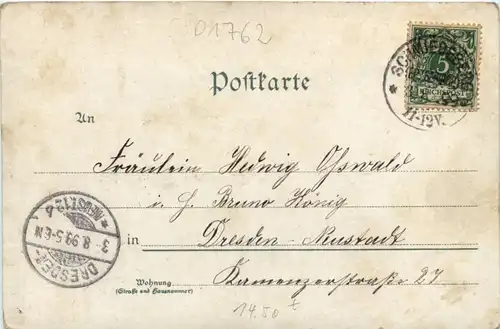 D1762
Postkarte
5
REICHSPOST
SCHMIEDEBERG
11-12V.
An
Fräulein Hedwig Oswald
i. H. Bruno König
in Dresden-Neustadt
Wohnung
(Straße und Hausnummer)
Kamenzerstraße 27
DRESDEN-
NEUST. 12 b
3 8 99 5-6N
14.50